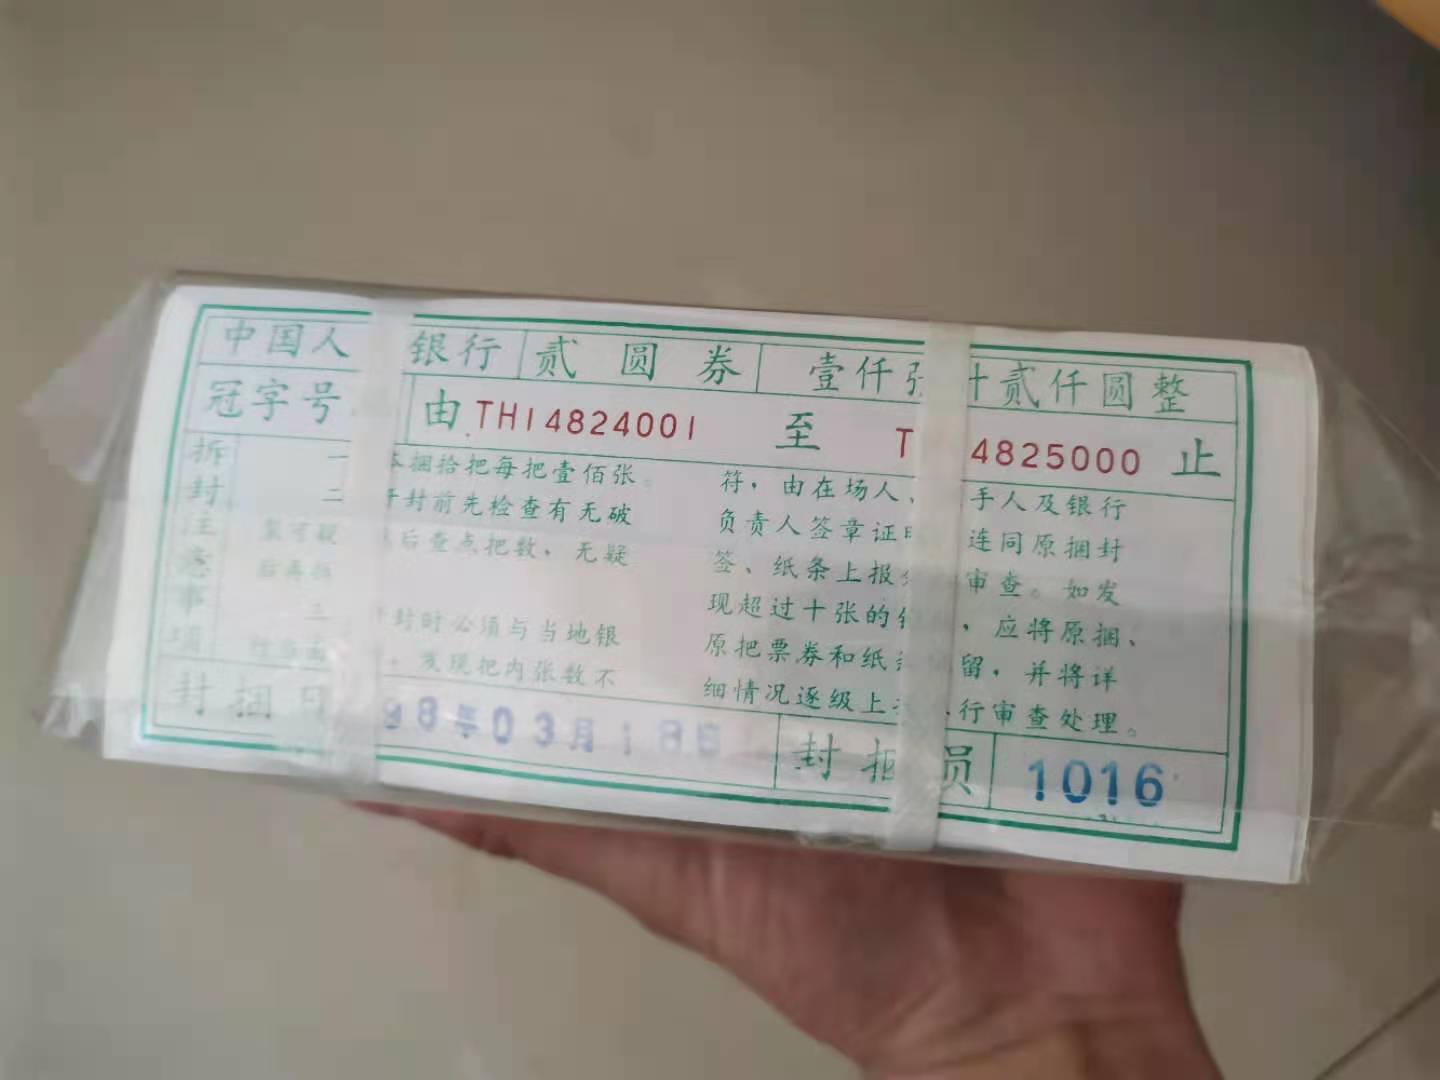 中国人 银行 贰圆券 壹仟张 计贰仟圆整
冠字号 由TH14824001 至 T 4825000 止
拆封注意事项
一 本捆拾把每把壹佰张。
二 开封前先检查有无破
裂可疑 后查点把数，无疑
后再拆
三 开封时必须与当地银
，发现把内张数不
符，由在场人、 手人及银行
负责人签章证明 连同原捆封
签、纸条上报 审查。如发
现超过十张的 ，应将原捆、
原把票券和纸条 留，并将详
细情况逐级上 行审查处理。
封捆日 98年03月18日 封捆员 1016